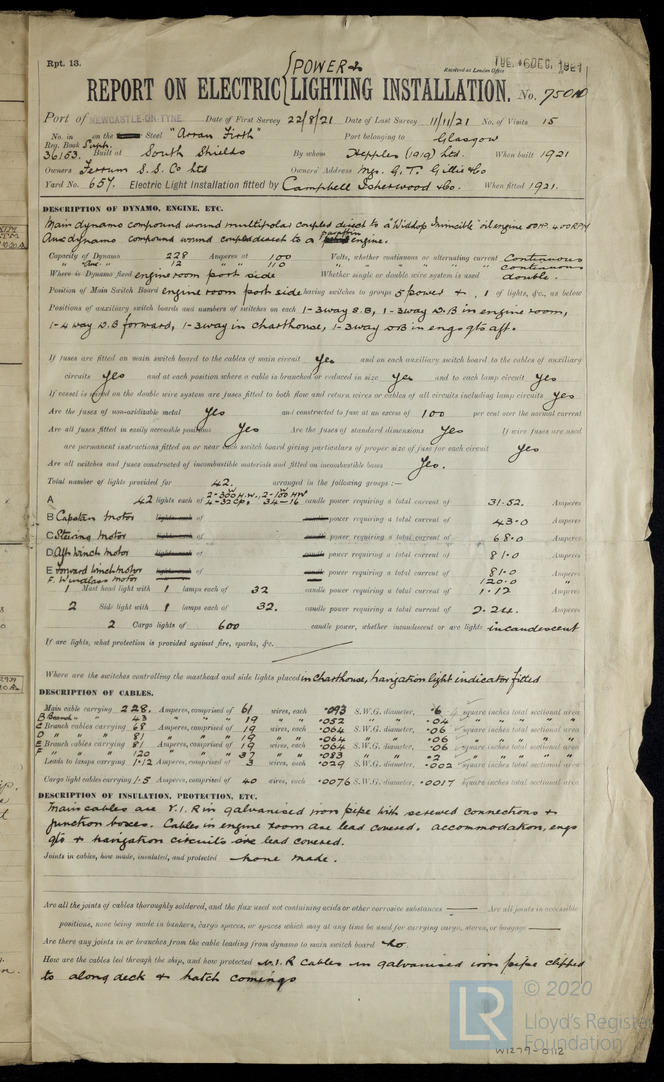 Rpt. 13.
POWER &
Received at London Office
TUE. 6 DEC. 1921
REPORT ON ELECTRIC LIGHTING INSTALLATION. No. 75010
Port of NEWCASTLE-ON-TYNE Date of First Survey 22/8/21 Date of Last Survey 11/11/21 No. of Visits 15
No. in on the Steel "Arran Firth" Port belonging to Glasgow
Reg. Book Supp.
36153. Built at South Shields By whom Hepples (1919) Ltd. When built 1921
Owners Ferrum S.S. Co Ltd Owners' Address Mgs. G. T. Gillie & Co
Yard No. 657. Electric Light Installation fitted by Campbell Isherwood & Co. When fitted 1921.
DESCRIPTION OF DYNAMO, ENGINE, ETC.
Main dynamo compound wound multipolar coupled direct to a "Widdop Invincible" oil engine 400 RPM
Aux dynamo compound wound coupled direct to a paraffin engine.
Capacity of Dynamo 228 Amperes at 100 Volts, whether continuous or alternating current Continuous
" Aux. " 12 " " 110 " " " " " continuous
Where is Dynamo fixed engine room port side Whether single or double wire system is used double.
Position of Main Switch Board engine room port side having switches to groups 5 power & 1 of lights, &c., as below
Positions of auxiliary switch boards and numbers of switches on each 1-3way S.B, 1-3way D.B in engine room,
1-4 way D.B forward, 1-3way in Charthouse, 1-3way D B in engs qts aft.
If fuses are fitted on main switch board to the cables of main circuit Yes and on each auxiliary switch board to the cables of auxiliary
circuits Yes and at each position where a cable is branched or reduced in size Yes and to each lamp circuit Yes
If vessel is wired on the double wire system are fuses fitted to both flow and return wires or cables of all circuits including lamp circuits Yes
Are the fuses of non-oxidizable metal Yes and constructed to fuse at an excess of 100 per cent over the normal current
Are all fuses fitted in easily accessible positions Yes Are the fuses of standard dimensions Yes If wire fuses are used
are permanent instructions fitted on or near each switch board giving particulars of proper size of fuse for each circuit Yes
Are all switches and fuses constructed of incombustible materials and fitted on incombustible bases Yes.
Total number of lights provided for 42. arranged in the following groups :—
A 42 lights each of 2-300 H.W., 2-100 HW 4-32cp, 34-16 candle power requiring a total current of 31.52. Amperes
B Capstan Motor lights each of candle power requiring a total current of 43.0 Amperes
C Steering Motor lights each of candle power requiring a total current of 68.0 Amperes
D Aft Winch Motor lights each of candle power requiring a total current of 81.0 Amperes
E Forward Winch Motor lights each of candle power requiring a total current of 81.0 Amperes
F. Windlass Motor 120.0 "
1 Mast head light with 1 lamps each of 32 candle power requiring a total current of 1.12 Amperes
2 Side light with 1 lamps each of 32. candle power requiring a total current of 2.24. Amperes
2 Cargo lights of 600 candle power, whether incandescent or arc lights incandescent
If arc lights, what protection is provided against fire, sparks, &c.
Where are the switches controlling the masthead and side lights placed in charthouse, navigation light indicator fitted
DESCRIPTION OF CABLES.
Main cable carrying 228. Amperes, comprised of 61 wires, each .093 S.W.G. diameter, .6 square inches total sectional area
B Branch " " 43 " " " 19 " " .052 " " .04 " " " "
C Branch cables carrying 68 Amperes, comprised of 19 wires, each .064 S.W.G. diameter, .06 square inches total sectional area
D " " 81 " " " 19 " " .064 " " .06 " " " "
E Branch cables carrying 81 Amperes, comprised of 19 wires, each .064 S.W.G. diameter, .06 square inches total sectional area
F " " 120 " " " 37 " " .083 " " .2 " " " "
Leads to lamps carrying 1.12 Amperes, comprised of 3 wires, each .029 S.W.G. diameter, .002 square inches total sectional area
Cargo light cables carrying 1.5 Amperes, comprised of 40 wires, each .0076 S.W.G. diameter, .0017 square inches total sectional area
DESCRIPTION OF INSULATION, PROTECTION, ETC.
Main cables are V.I.R in galvanised iron pipe with screwed connections &
junction boxes. Cables in engine room are lead covered. accommodation, engs
qts & navigation circuits are lead covered.
Joints in cables, how made, insulated, and protected none made.
Are all the joints of cables thoroughly soldered, and the flux used not containing acids or other corrosive substances — Are all joints in accessible
positions, none being made in bunkers, cargo spaces, or spaces which may at any time be used for carrying cargo, stores, or baggage —
Are there any joints in or branches from the cable leading from dynamo to main switch board No.
How are the cables led through the ship, and how protected V.I.R Cables in galvanised iron pipe clipped
to along deck & hatch comings
© 2020
LR
Lloyd's Register
Foundation
W1279-0112